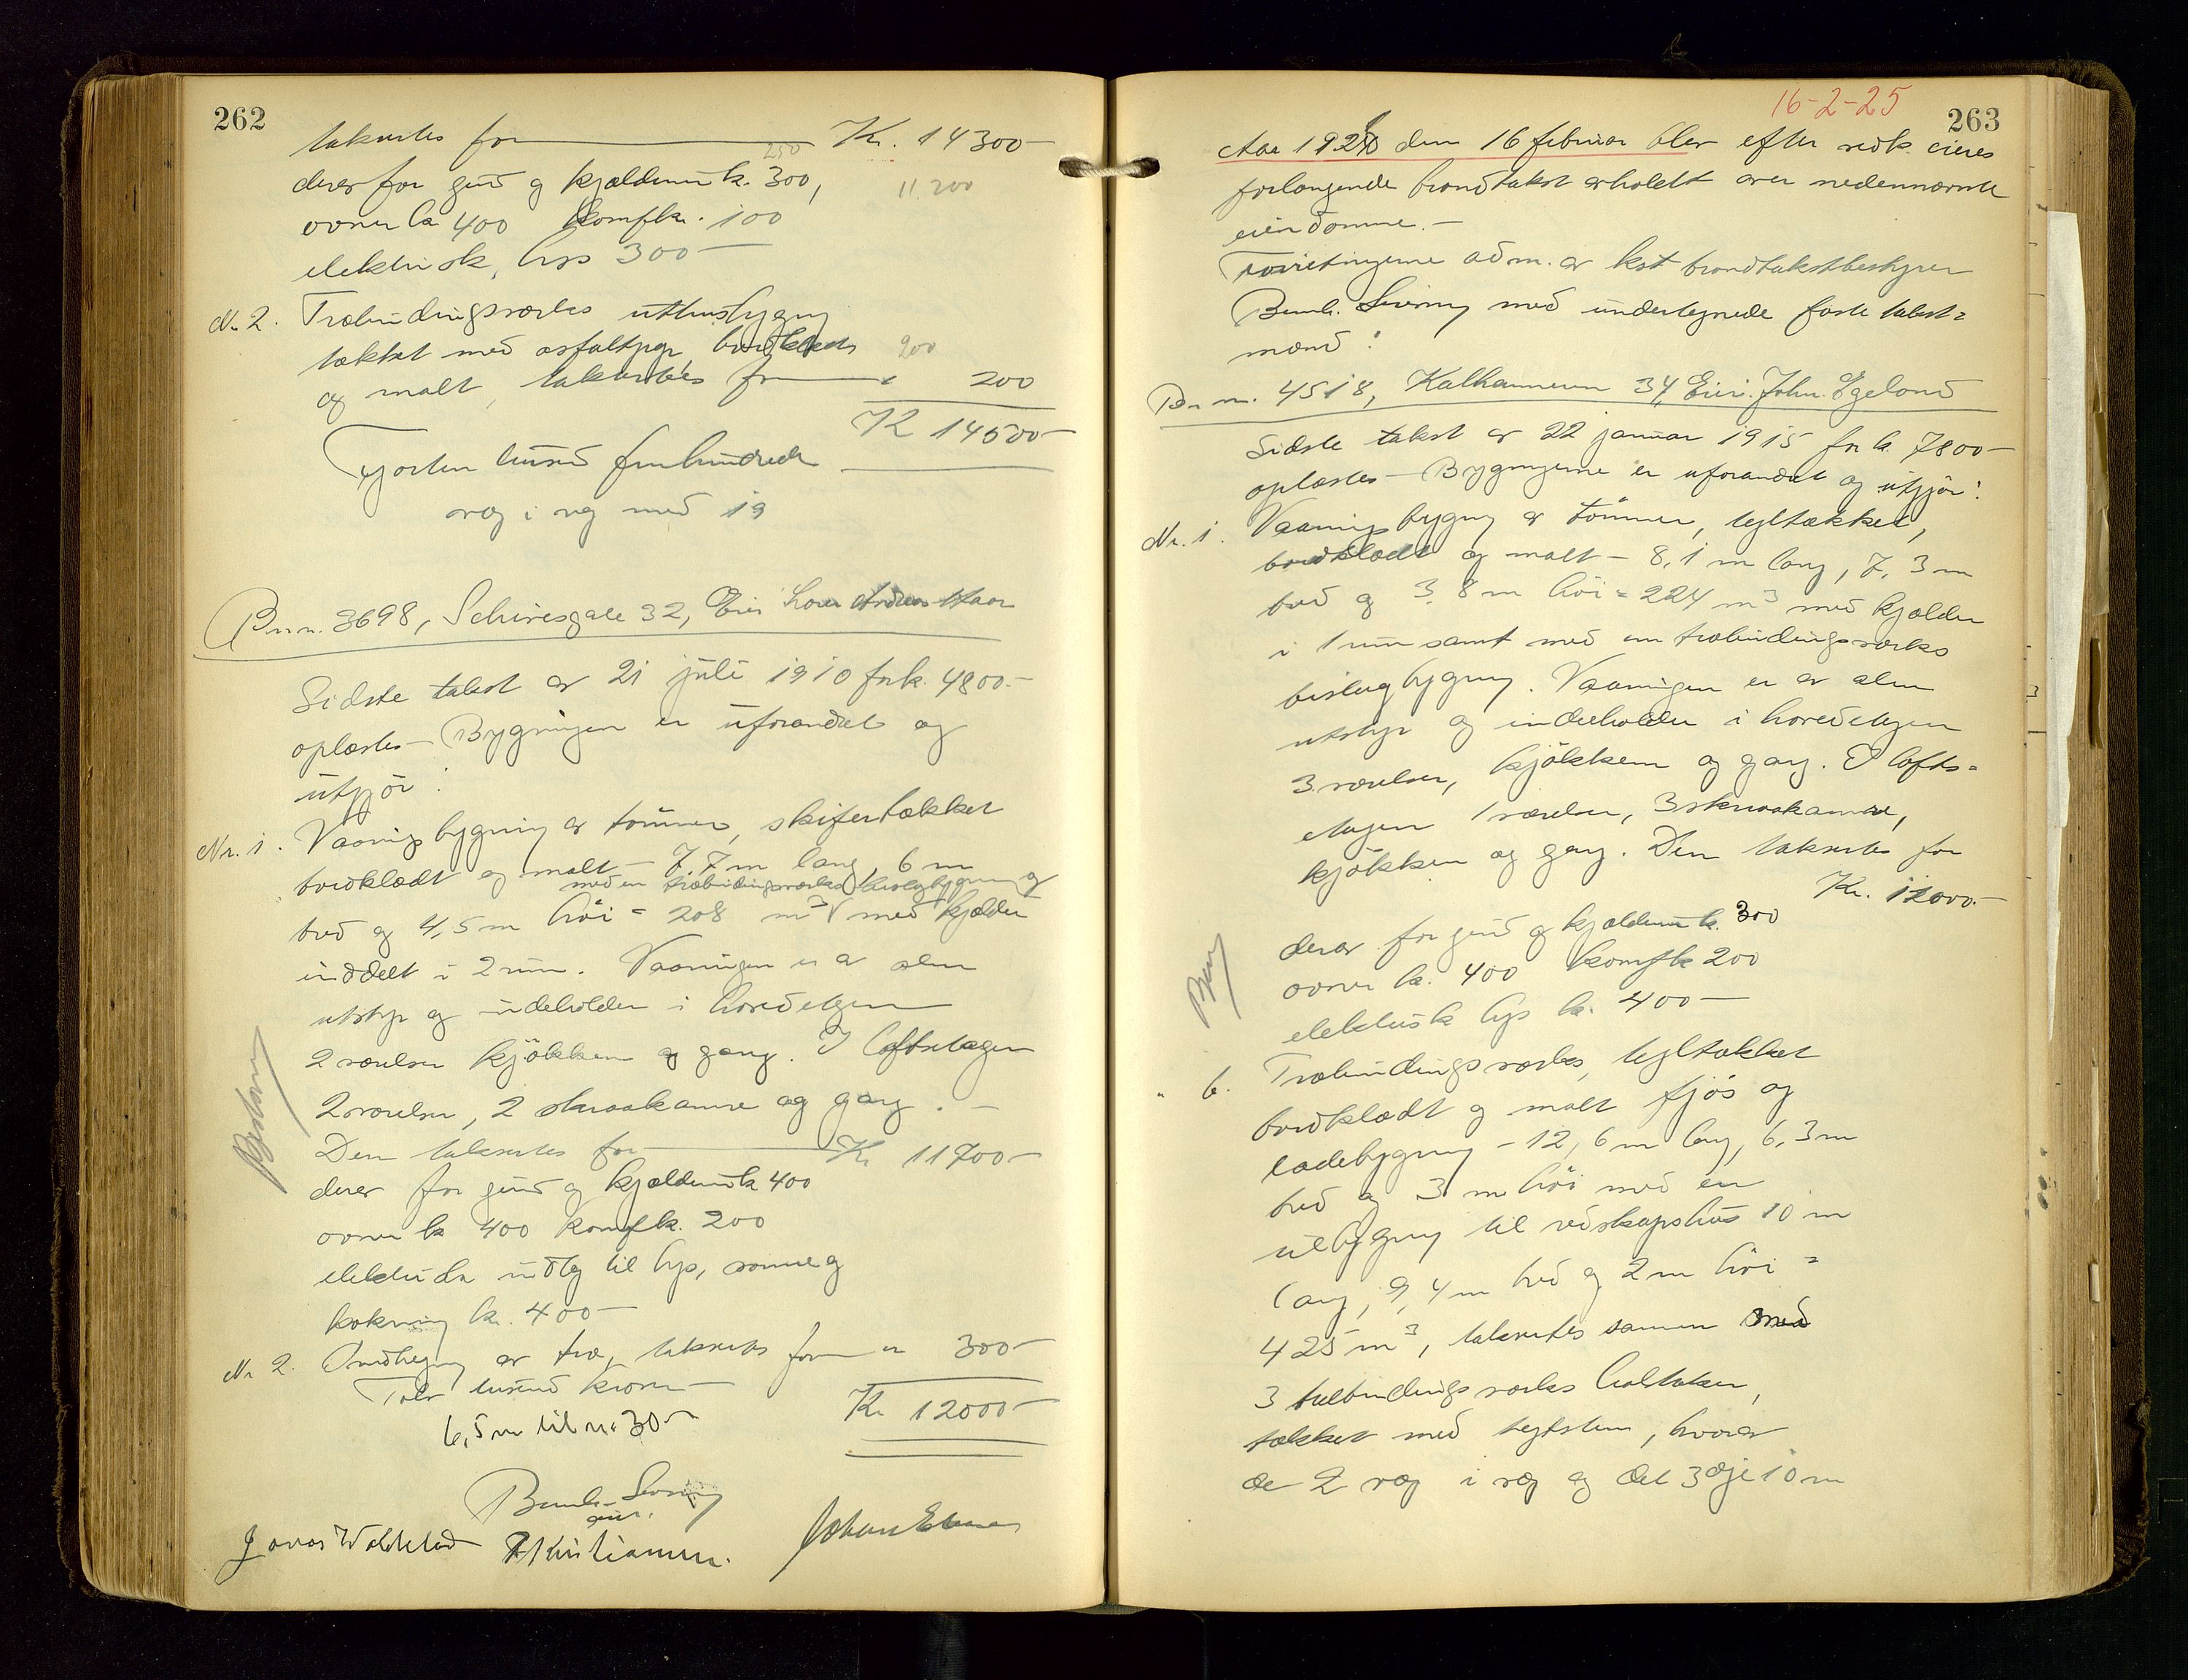 262
takseres for Kr. 14300-
250
derav for grund og kjældermur k. 300,
11.200
ovner kr 400 komf kr. 100
elektrisk lys 300-
Nr. 2. Træbindingsværks uthusbygning
tækket med asfaltpap, bordklædt 200
og malt, takseres for " 200
Kr 14500-
Fjorten tusind femhundrede
væg i væg med 19
Br. nr. 3698, Schivesgate 32, Eier
Sidste takst av 21 juli 1910 for k. 4800.-
oplæstes - Bygningen er uforandret og
utgjør:
Nr. 1. Vaaningsbygning av tømmer, skifertækket
bordklædt og malt - 7,7 m lang, 6 m
med en træbindingsværks bislagbygning og
bred og 4,5 m høi = 208 m³ V med kjælder
inddelt i 2 rum. Vaaningen er av alm
utstyr og indeholder i hovedetagen
2 værelser kjøkken og gang. I loftsetagen
2 værelser, 2 skraakamre og gang. -
Den takseres for Kr 11700-
derav for grund og kjældermur k 400
ovner k 400 komf k. 200
elektrisk indlæg til lys, varme og
kokning kr. 400-
Nr 2. av træ, takseres for " 300-
Tolv tusind kroner -
Kr 12000-
6,5 m til nr 30-
Johan
16-2-25
263
Aar 1925 den 16 februar blev efter vedk. eieres
forlangende brandtakst avholdt over nedennævnte
eiendomme. -
Forretningerne adm. av kst brandtakstbestyrer
med undertegnede faste takst=
mænd:
Br. nr. 4518, Kalhammeren 34, Eier: John Egeland
Sidste takst av 22 januar 1915 for k. 7800-
oplæstes - Bygningerne er uforandret og utgjør:
Nr. 1. Vaaningsbygning av tømmer, tegltækket,
bordklædt og malt - 8,1 m lang, 7,3 m
bred og 3,8 m høi = 224 m³ med kjælder
i 1 rum samt med en træbindingsværks
bislagbygning. Vaaningen er av alm
utstyr og indeholder i hovedetagen
3 værelser, kjøkken og gang. I lofts=
etagen 1 værelse, 3 skraakamre,
kjøkken og gang. Den takseres for
Kr. 12000.-
derav for grund og kjældermur k. 300
ovner kr. 400 komf k 200
elektrisk lys kr. 400-
" b. Træbindingsværks, tegltækket
bordklædt og malt fjøs og
ladebygning - 12,6 m lang, 6,3 m
bred og 3 m høi med en
tilbygning til redskapshus 10 m
lang, 9,4 m bred og 2 m høi =
425 m³, takseres sammen med
3 træbindingsværks
tækket med teglsten, hvorav
de 2 væg i væg og det 3dje 10 m